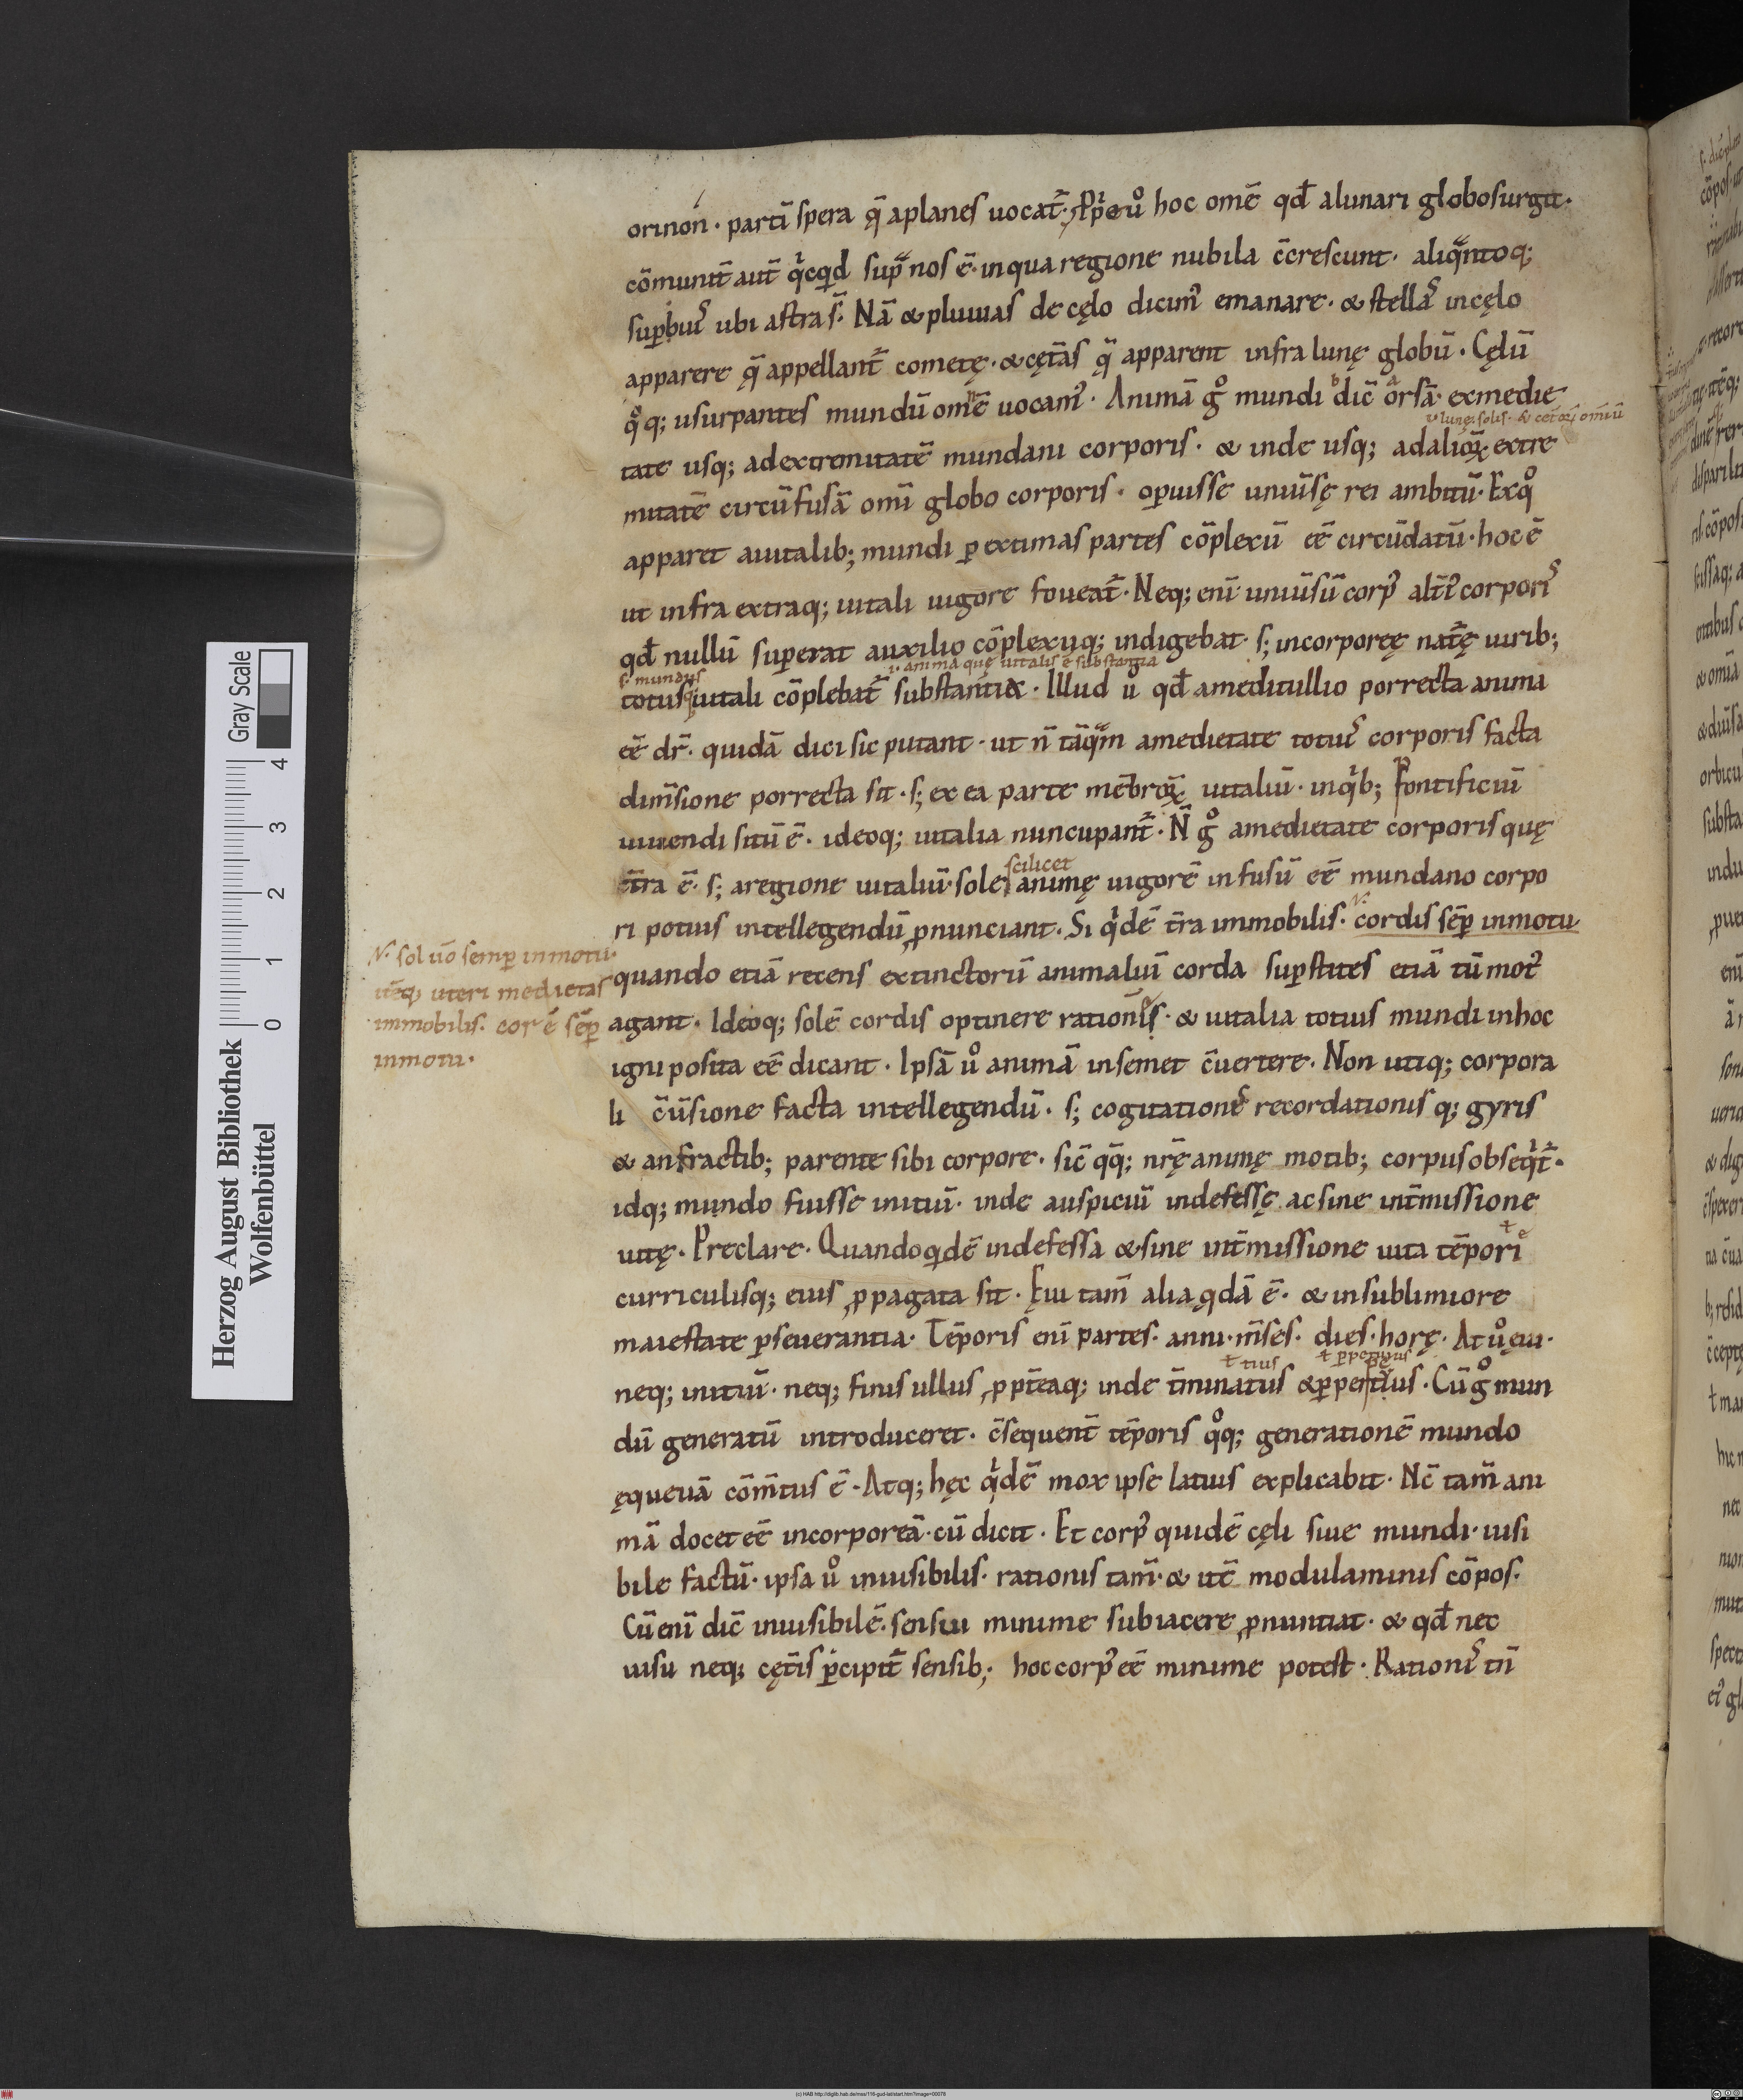 orinon · partī spera q̄ aplanes uocat᷑· ꝓprie ů hoc omē qđ alunari globosurgit·
cōmunit̄ aut̄ qͥcqͥd sup͛ nos ē· inqua regione nubila c̄crescunt· aliqͣntoq;
superbuͥ ubi astra s̄· Nā & pluuias de cęlo dicim᷒ emanare· & stellaͥ incęlo
apparere q̄ appellant᷑ cometę· & cęt̄as q̄ apparent infra lunę globū· Cęlū
qͦq; usurpantes mundū omnē uocam᷒· Animā gͦ mundi dic̄ orsā· exmedie
ı· lunę· solis· & cet̄oꝝ omiū
tate usq; adextremitatē mundani corporis· & inde usq; adalioꝝ extre
mitatē circūfusā omī globo corporis· oꝑuisse uniūsę rei ambitū· Exqͦ
apparet auitalib; mundi ꝑ extimas partes cōplexū eē circūdatū· hoc ē
ut infra extraq; uitali uigore foueat᷑· Neq; enī uniūsū corp᷒ alt̄i᷒ corporiͥ
qđ nullū superat auxilio cōplexuq; indigebat· s; incorporeę nat᷑ę uirib;
s· mundus
ı· anima quę uitalis ē substantia
totusq; uitali cōplebat᷑ substantia· Illud ů qđ ameditullio porrecta anima
eē dr̄· quidā dici sic putant· ut n̄ tāqͣm amedietate totiuͥ corporis facta
dim̄sione porrecta sit· s; ex ea parte mēbroꝝ uitaliū· inqͥb; Pontificiū
uiuendi sitū ē· ideoq; uitalia nuncupant᷑· N̄ gͦ amedietate corporis quę
scilicet
t̄ra ē· s; aregione uitaliū· sole animę uigorē infusū eē mundano corpo
ri potius intellegendū ꝓnunciant· Si qͥdē t̄ra immobilis· cordis sēꝑ inmotu
N· sol uo̅ semꝑ inmotu·
itēq; uteri medietas
immobilis· cor ē sēꝑ
inmotu·
quando etiā recens extinctorū animaliū corda suꝑstites etiā tū mot᷒
agant· Ideoq; solē cordis optinere rationīs· & uitalia totius mundi inhoc
igni posita eē dicant· Ipsā ů animā insemet c̄uertere· Non utiq; corpora
li c̄ūsione facta intellegendū· s; cogitationeͥ recordationis q; gyris
& anfractib; parente sibi corpore· sic̄ qq̄; nr̄ę animę motib; corpus obseqͥt᷑·
idq; mundo fuisse initiū· inde auspiciū indefessę ac sine int̄missione
uitę· Preclare· Quandoqͥdē indefessa & sine int̄missione uita tēpori
curriculisq; eius ꝓpagata sit· Ęui tam̄ alia qͥdā ē· & insublimiore
maiestate ꝑseuerantia· Tēporis enī partes· anni· m̄ses· dies· horę· At ů ęui·
ł tius
ł ꝑpetuus
neq; initiū· neq; finis ullus ꝓpt̄eaq; inde t̄minatus &ꝑpetuus· Cū gͦ mun
dū generatū introduceret· c̄sequent̄ tēporis qͦq; generationē mundo
ęqueuā cōm̄tus ē· Atq; hęc qͥdē mox ipse latius explicabit· Nc̄ tam̄ ani
mā docet eē incorporeā· cū dicit· Et corp᷒ quidē cęli siue mundi· uisi
bile factū· ipsa ů inuisibilis· rationis tam̄· & itē modulaminis cōpos·
Cū enī dic̄ inuisibilē· sensui minime subiacere ꝓnuntiat· & qđ nec
uisu neq; cęt̄is ꝑcipit᷑ sensib; hoc corp᷒ eē minime potest· Rationiͥ tn̄
Herzog August Bibliothek
Wolfenbüttel
Gray Scale
0 1 2 3 4
(c) HAB http://diglib.hab.de/mss/116-gud-lat/start.htm?image=00078